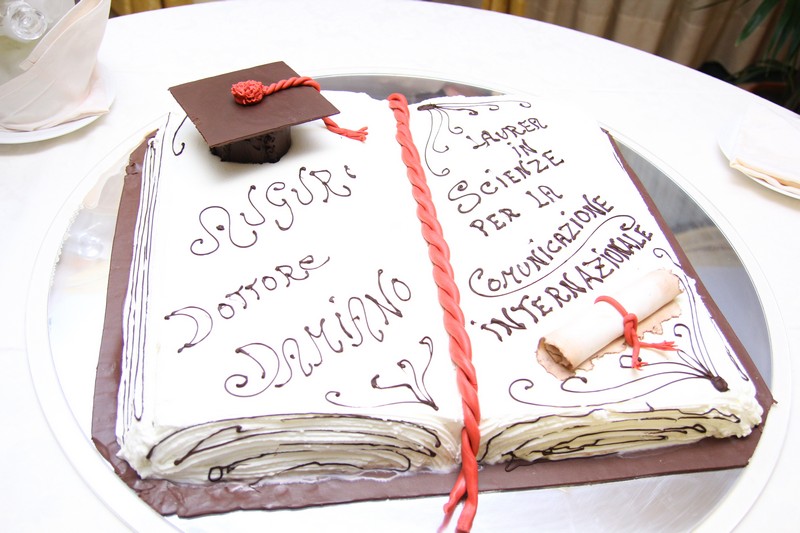 AUGURI
DOTTORE
DAMIANO
LAUREA
IN
SCIENZE
PER LA
COMUNICAZIONE
INTERNAZIONALE